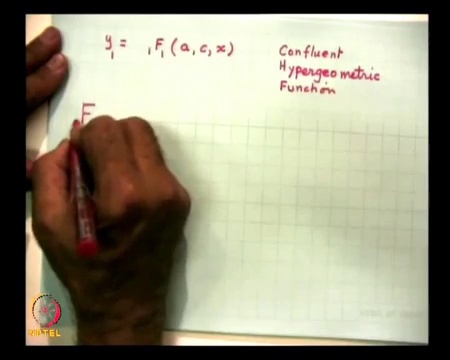 y₁ = ₁F₁ (a, c, x)
Confluent
Hypergeometric
Function
F
NPTEL